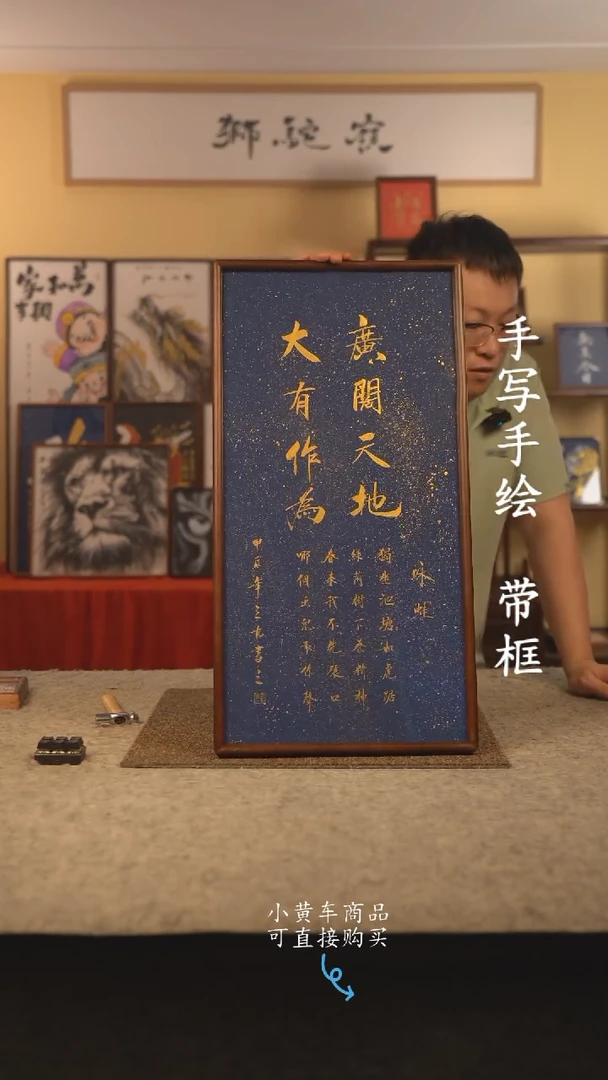 獅駝
家和萬
事興
廣闊天地
大有作為
詠蛙
獨坐池塘如虎踞
綠蔭樹下養精神
春來我不先張口
哪個蟲兒敢作聲
甲辰年
手写手绘 带框
小黄车商品
可直接购买